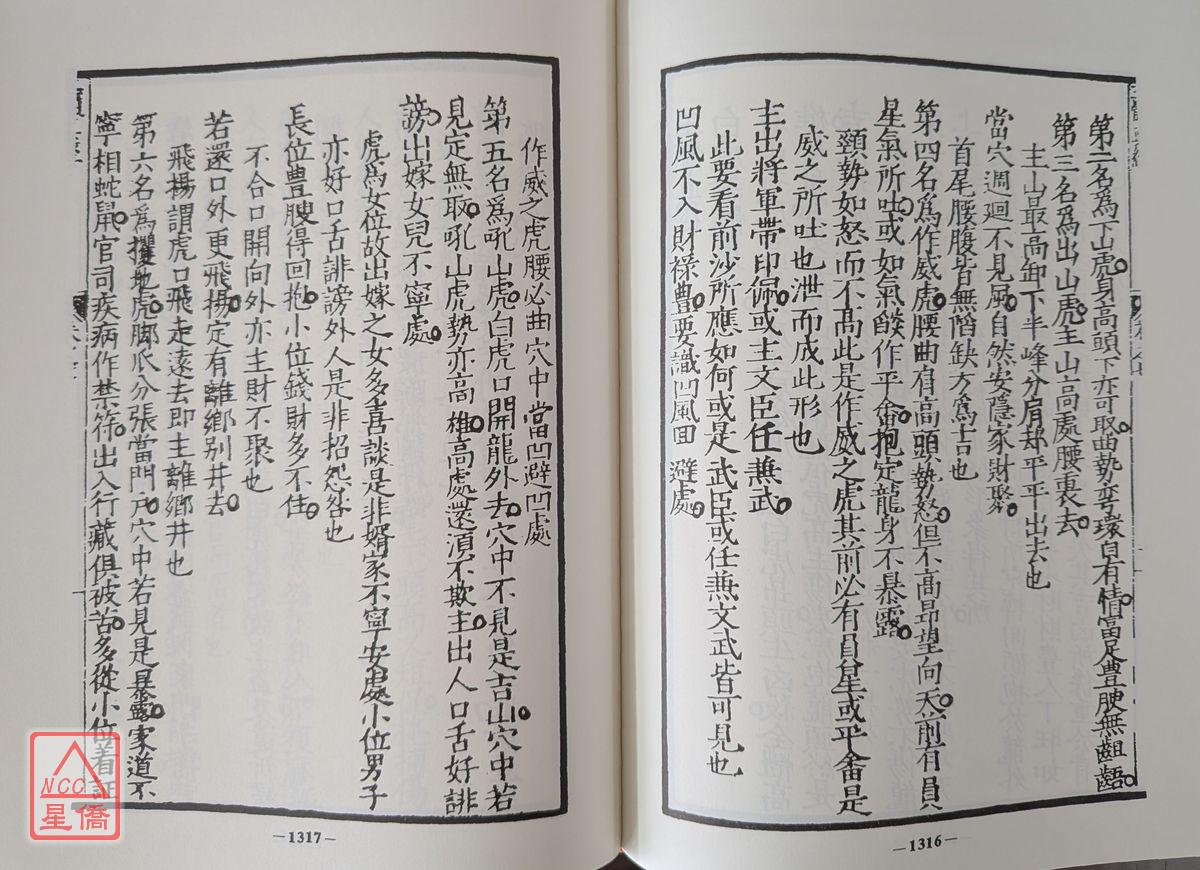 第二名為下山虎身高頭下亦可取曲勢弯環自有情富足豊腴無齟齬
第三名為出山虎主山高處腰裏去
主山最高卸下半峰分肩却平平出去也
當穴週廻不見風自然安隱家財聚
首尾腰腹皆無陷缺方為吉也
第四名為作威虎腰曲有高頭勢怒但不高昻望向天前有員
星氣所吐或如氣熖作平畬抱定龍身不暴露
頸勢如怒而不高此是作威之虎其前必有員星或平畬是
威之所吐也泄而成此形也
主出將軍帶印佩或主文臣任兼武
此要看前沙所應如何或是武臣或任兼文武皆可見也
凹風不入財祿豊要識凹風回避處
—1316—
作威之虎腰必曲穴中當凹避凹處
第五名為吼山虎白虎口開龍外去穴中不見是吉山穴中若
見定無取吼山虎勢亦高雄高處還須不欺主出人口舌好誹
謗出嫁女兒不寧處
虎為女位故出嫁之女多喜談是非婿家不寧安處小位男子
亦好口舌誹謗外人是非招怨咎也
長位豊腴得回抱小位錢財多不住
不合口開向外亦主財不聚也
若還口外更飛揚定有離鄉别井去
飛揚謂虎口飛走遠去即主離鄉井也
第六名為攫地虎脚爪分張當門戶穴中若見是暴露家道不
寧相蛇鼠官司疾病作禁符出入行藏俱被苦多從小位着証
—1317—
NCC
星僑